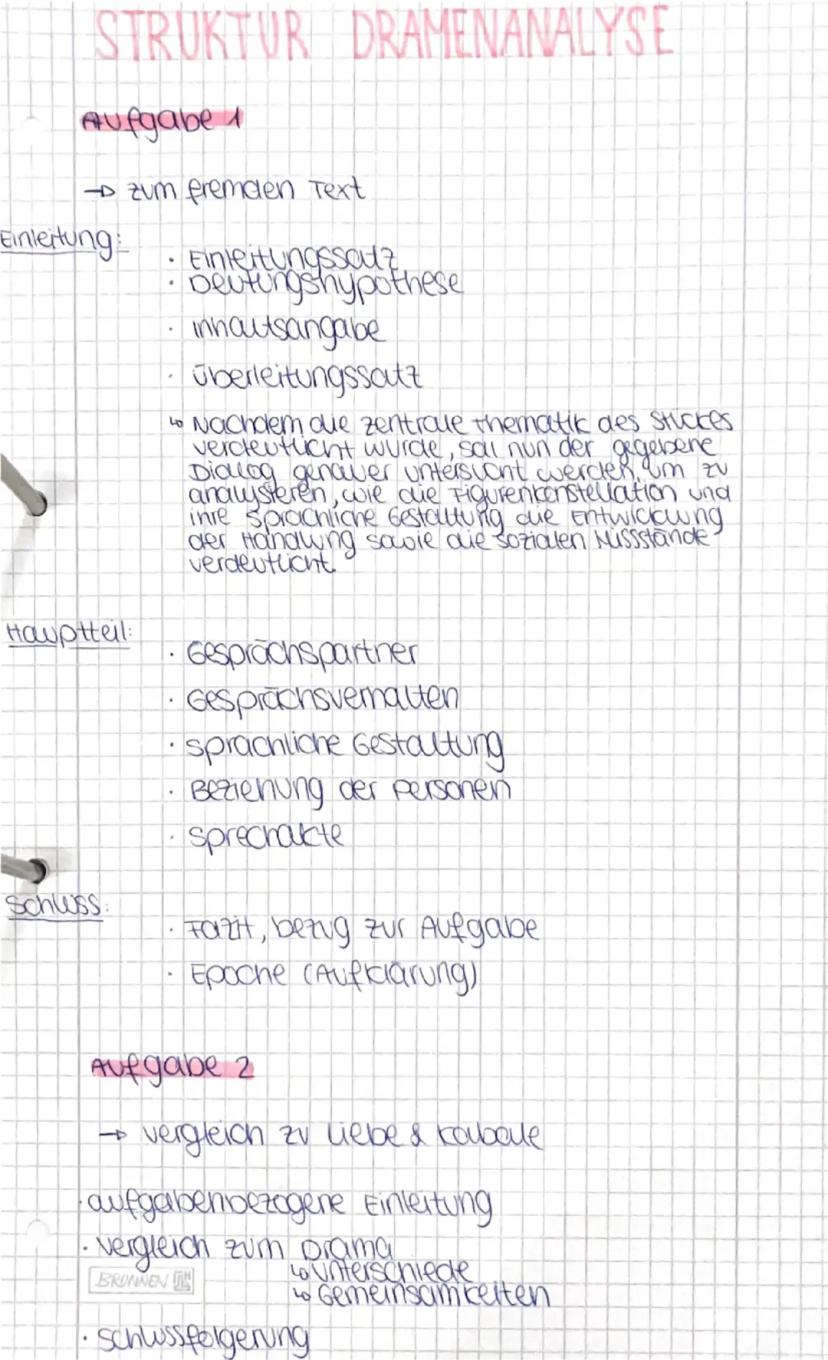 STRUKTUR DRAMENANALYSE
Aufgabe 1
→ zum fremden Text
Einleitung:
· Einleitungssatz
· Deutungshypothese
· Inhaltsangabe
· Überleitungssatz
↳ Nachdem die zentrale Thematik des Stückes
verdeutlicht wurde, soll nun der gegebene
Dialog genauer untersucht werden, um zu
analysieren, wie die Figurenkonstellation und
ihre sprachliche Gestaltung die Entwicklung
der Handlung sowie die sozialen Missstände
verdeutlicht.
Hauptteil:
· Gesprächspartner
· Gesprächsverhalten
· sprachliche Gestaltung
· Beziehung der Personen
· Sprechakte
Schluss:
· Fazit, bezug zur Aufgabe
· Epoche (Aufklärung)
Aufgabe 2
→ vergleich zu Liebe & Kabale
· aufgabenbezogene Einleitung
· vergleich zum Drama
↳ Unterschiede
BRUNNEN
↳ Gemeinsamkeiten
· Schlussfolgerung